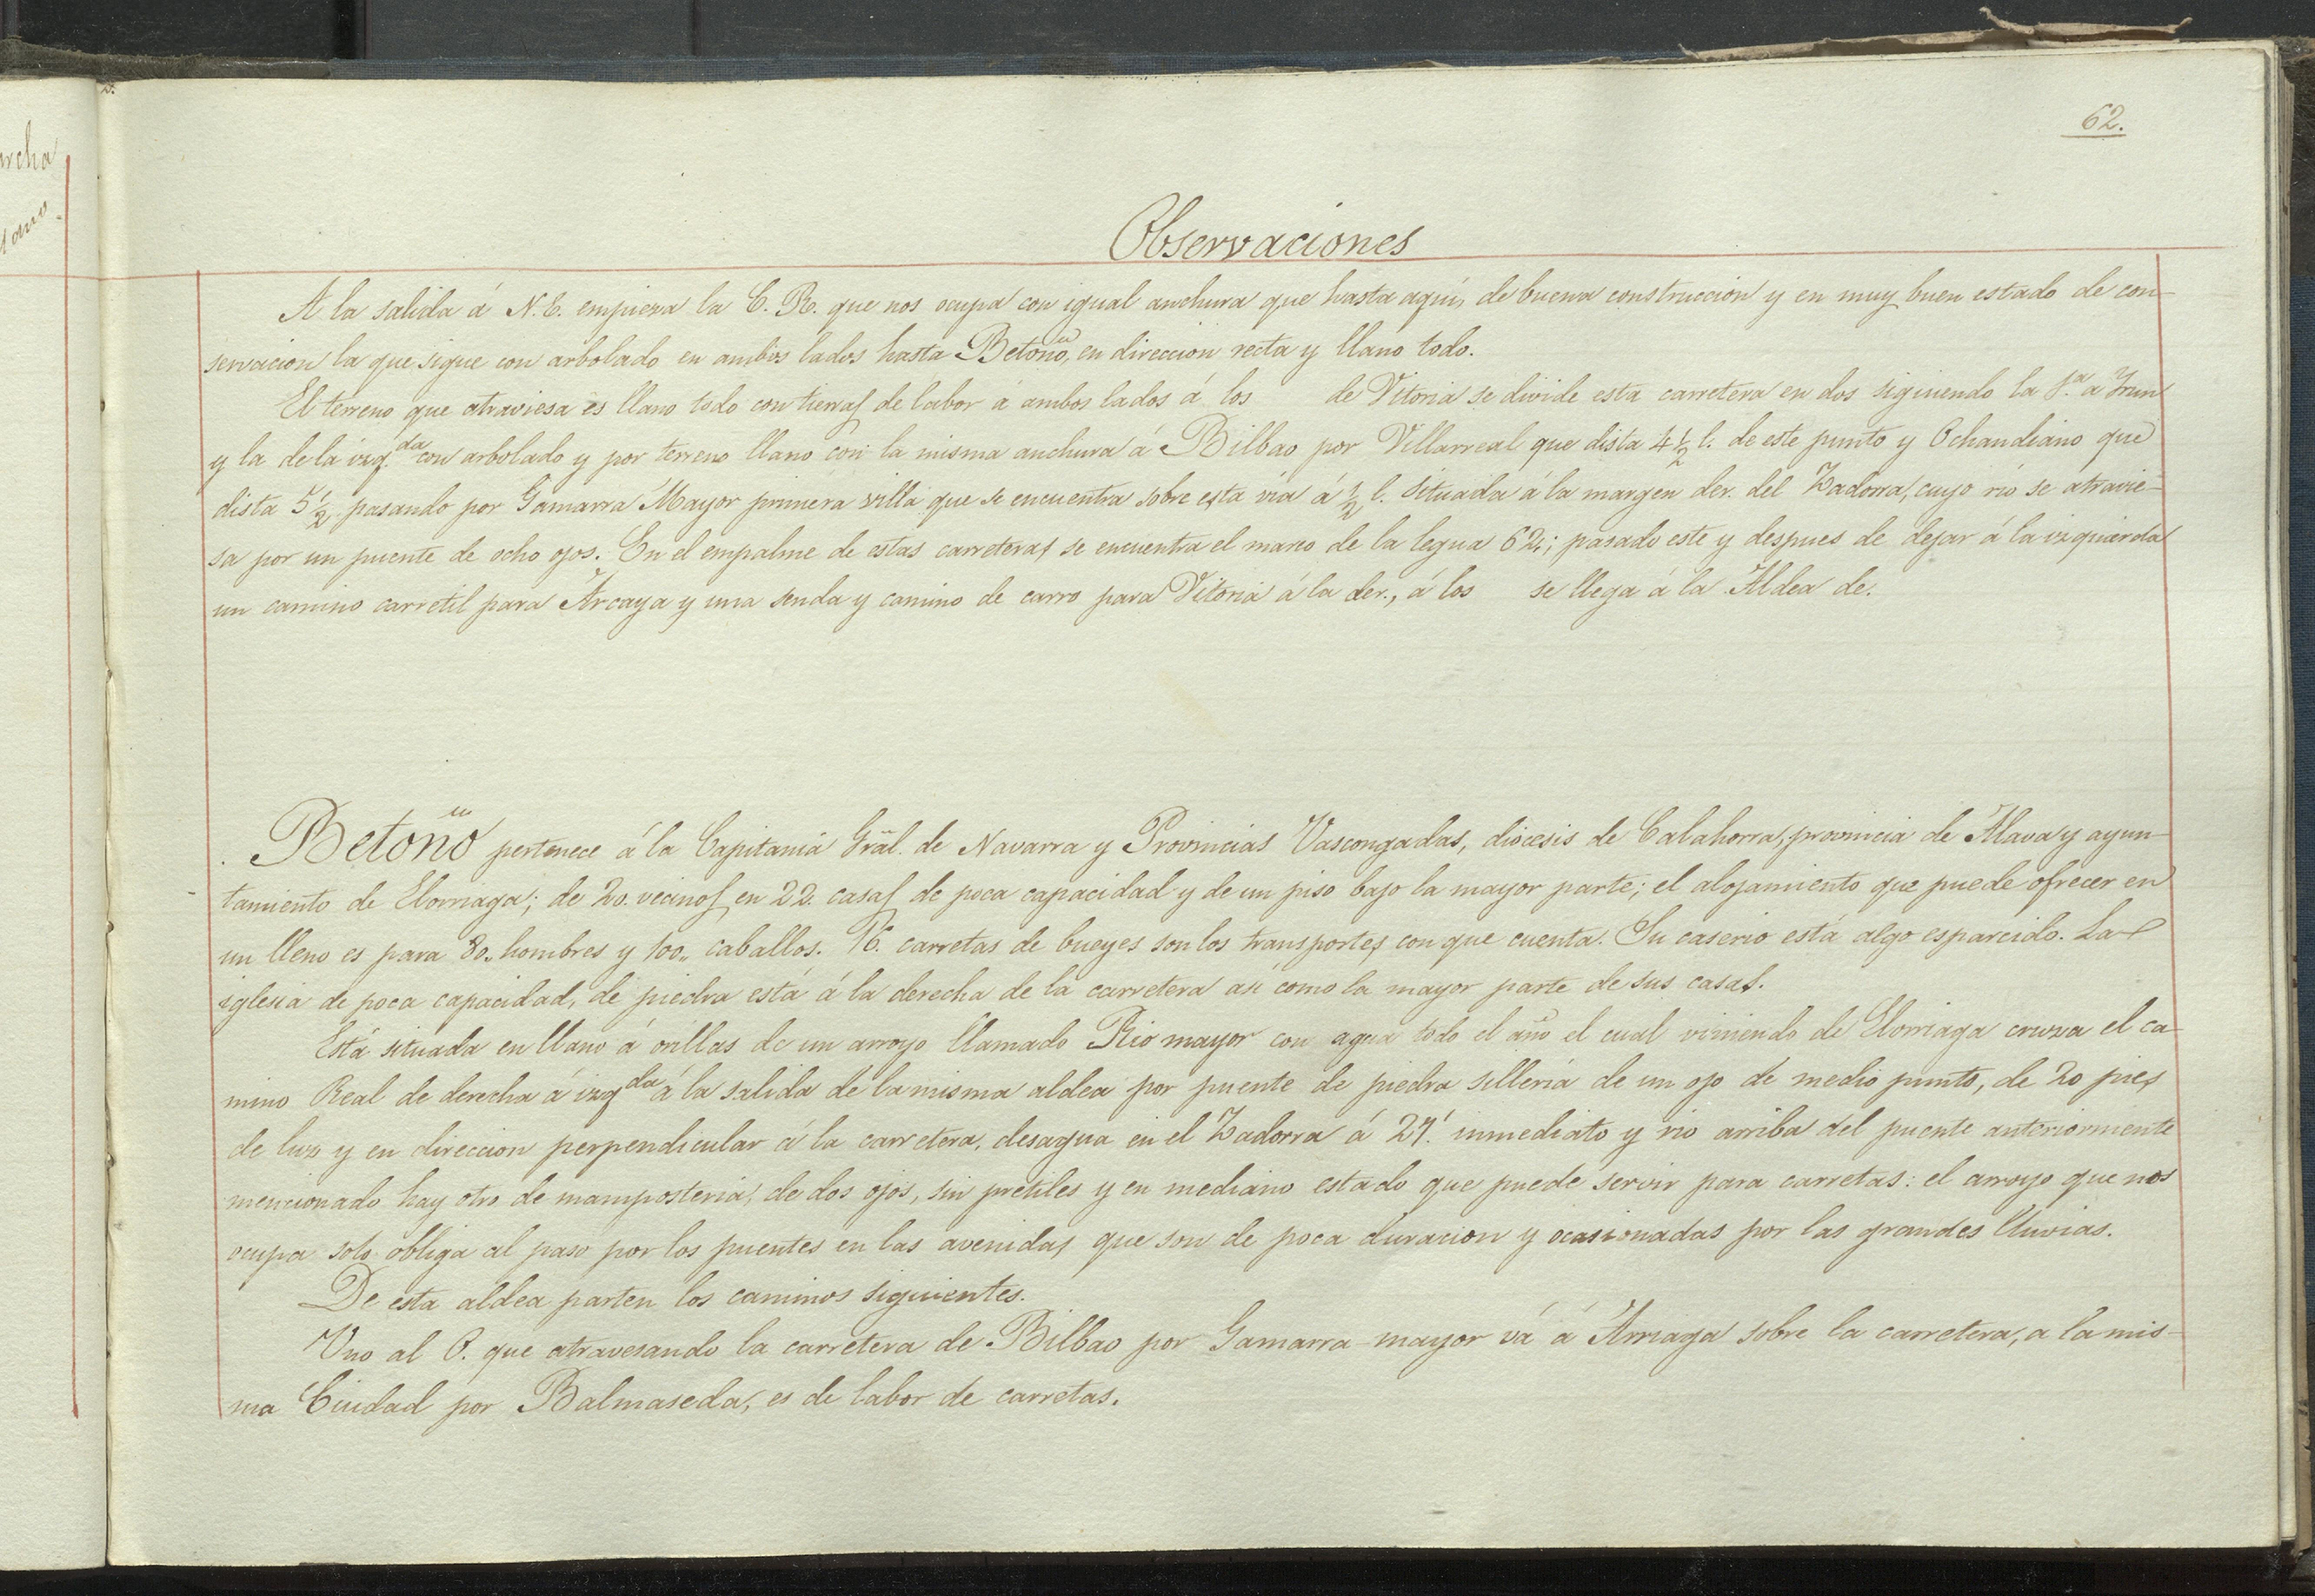 archa
62.
Observaciones
A la salida á N.E. empieza la C. R. que nos ocupa con igual anchura que hasta aquí, de buena construccion y en muy buen estado de con-
servacion la que sigue con arbolado en ambos lados hasta Betoño, en direccion recta y llano todo.
El terreno que atraviesa es llano todo con tierras de labor á ambos lados á los de Vitoria se divide esta carretera en dos siguiendo la 1.ª a Irun
y la de la izq.da con arbolado y por terreno llano con la misma anchura á Bilbao por Villarreal que dista 4 1/2 l. de este punto y Ochandiano que
dista 5 1/2 pasando por Gamarra Mayor primera villa que se encuentra sobre esta via á 1/2 l. situada á la margen der. del Zadorra, cuyo rio se atravie-
sa por un puente de ocho ojos. En el empalme de estas carreteras se encuentra el marco de la legua 62; pasado este y despues de dejar á la izquierda
un camino carretil para Arcaya y una senda y camino de carro para Vitoria á la der., á los se llega á la Aldea de.
Betoño pertenece á la Capitania Gral. de Navarra y Provincias Vascongadas, diócesis de Calahorra, provincia de Alava y ayun-
tamiento de Elorriaga; de 20. vecinos en 22. casas de poca capacidad y de un piso bajo la mayor parte; el alojamiento que puede ofrecer en
un lleno es para 80.. hombres y 100.. caballos. 16. carretas de bueyes son los transportes con que cuenta. Su caserio está algo esparcido. La
iglesia de poca capacidad, de piedra está á la derecha de la carretera asi como la mayor parte de sus casas.
Está situada en llano á orillas de un arroyo llamado Rio mayor con agua todo el año el cual viniendo de Elorriaga cruza el ca-
mino Real de derecha á izqda á la salida de la misma aldea por puente de piedra sillería de un ojo de medio punto, de 20 pies
de luz y en direccion perpendicular á la carretera, desagua en el Zadorra á 27.' inmediato y rio arriba del puente anteriormente
mencionado hay otro de mamposteria, de dos ojos, sin pretiles y en mediano estado que puede servir para carretas: el arroyo que nos
ocupa solo obliga al paso por los puentes en las avenidas que son de poca duracion y ocasionadas por las grandes lluvias.
De esta aldea parten los caminos siguientes.
Uno al O. que atravesando la carretera de Bilbao por Gamarra mayor vá á Arriaga sobre la carretera, a la mis-
ma Ciudad por Balmaseda, es de labor de carretas.